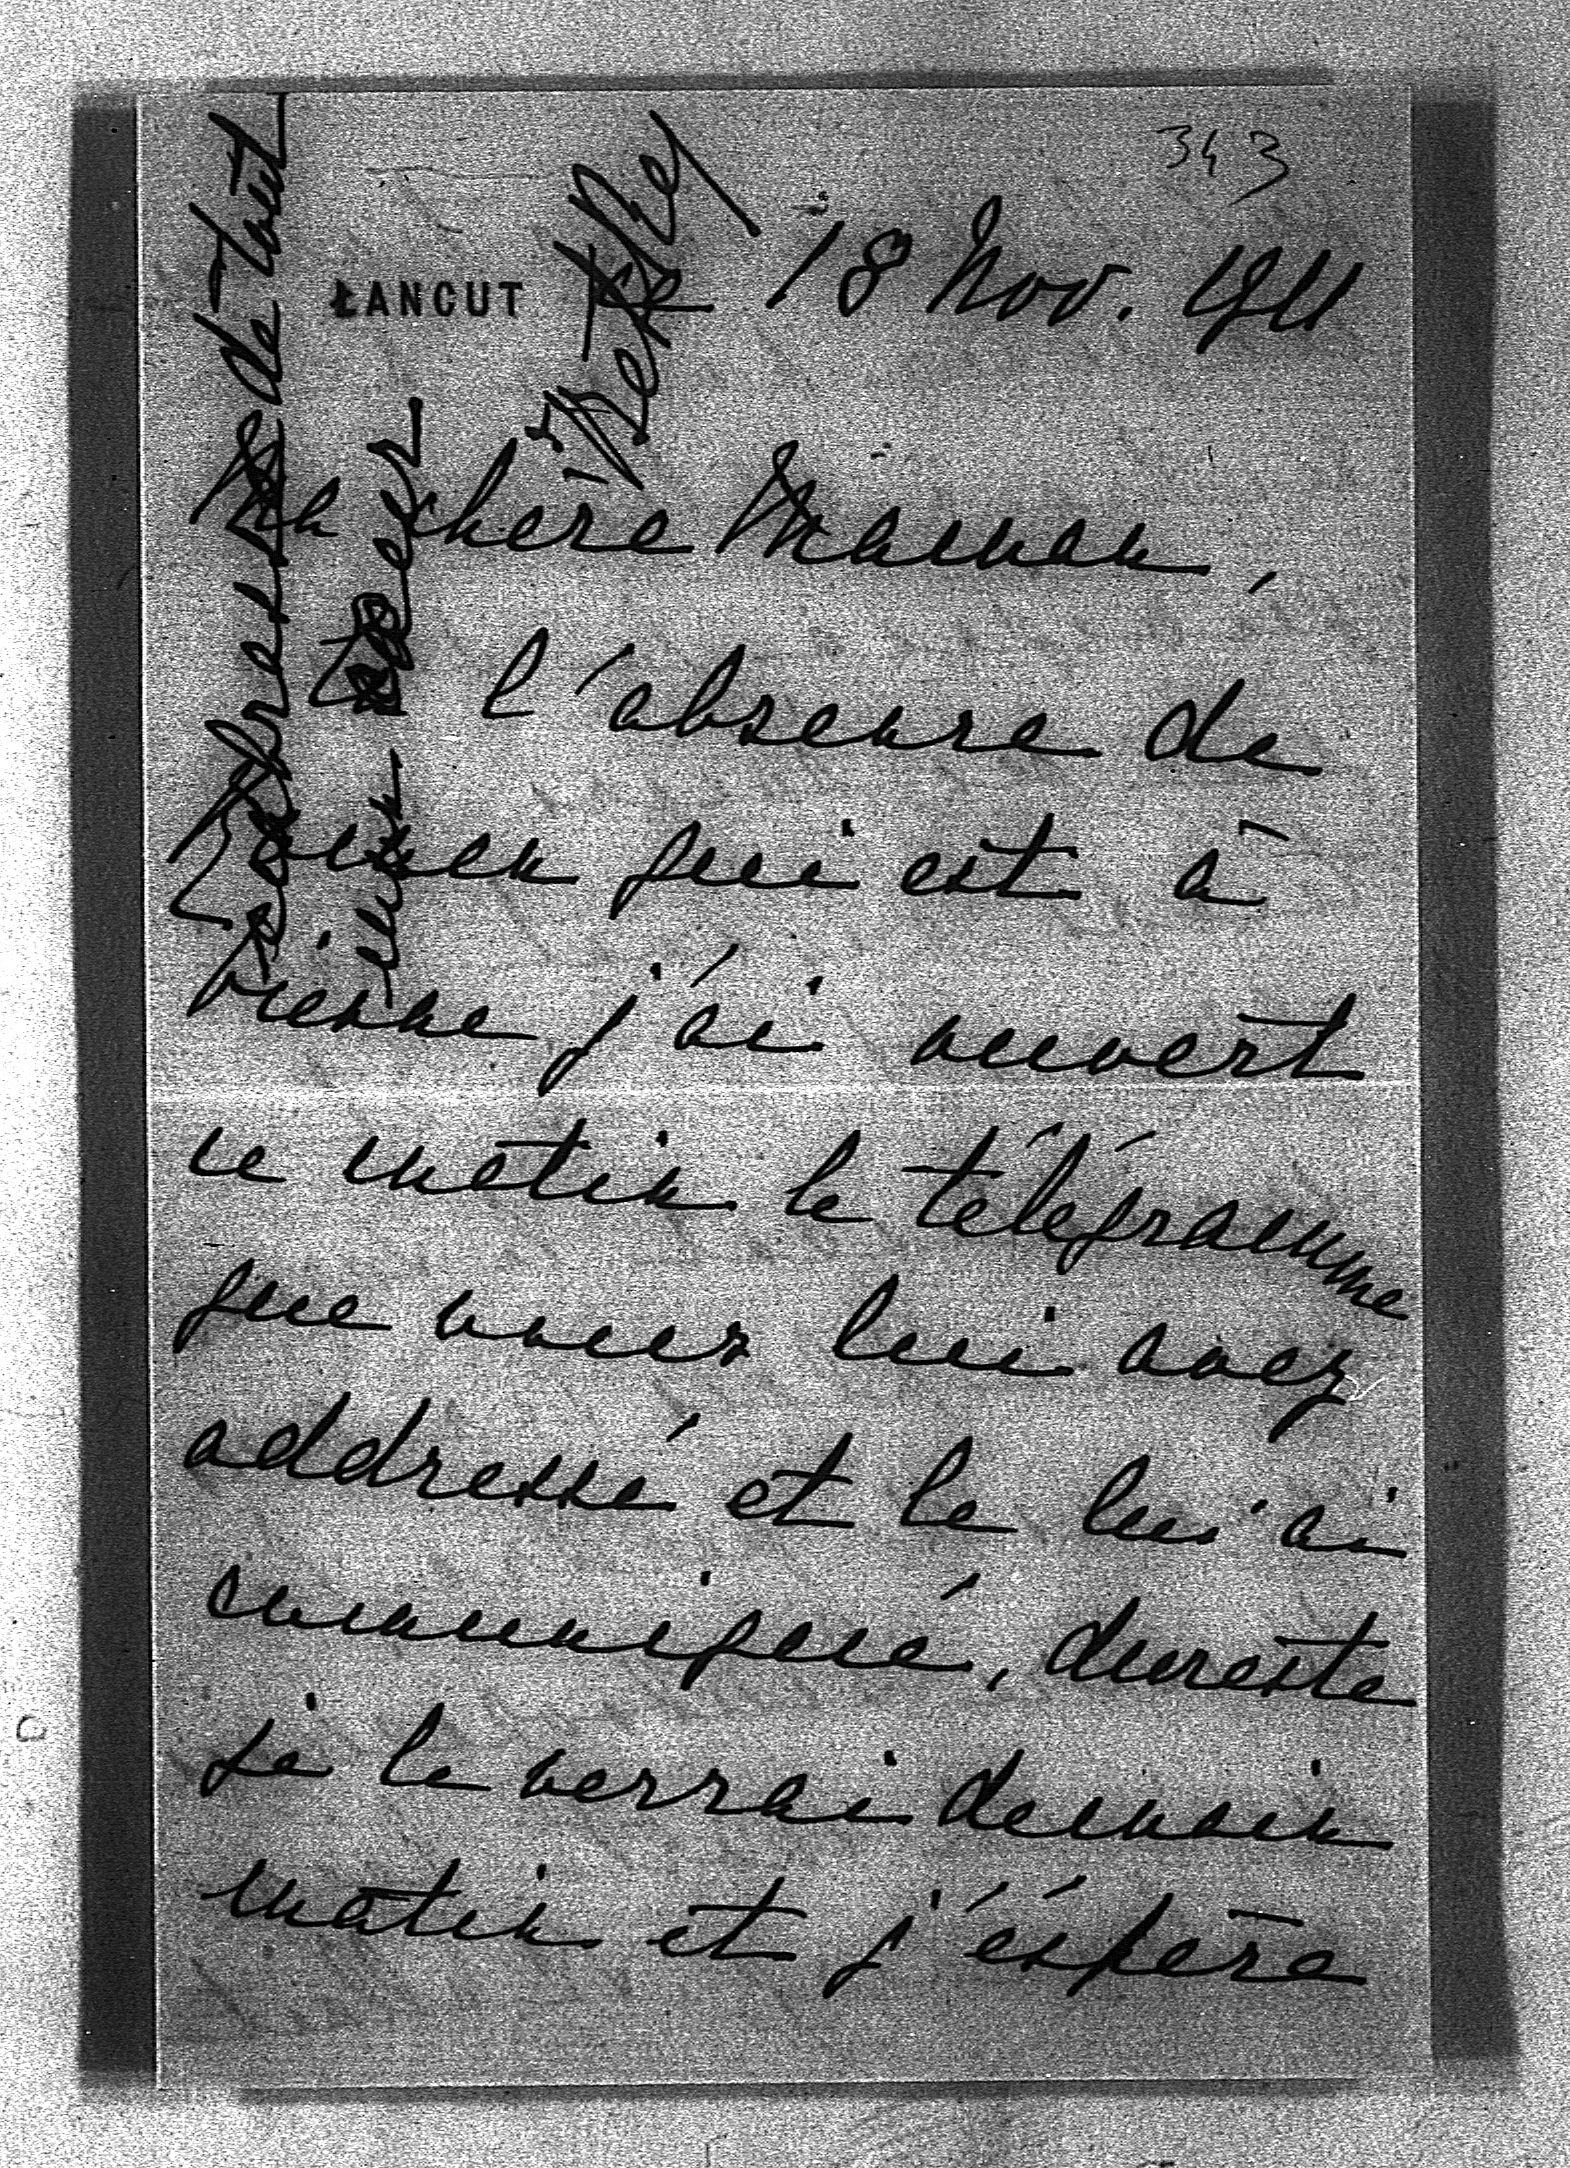 343
ŁANCUT
18 Nov. 1911
Ma chère Maman,
l'absence de
Roman qui est à
Vienne j'ai ouvert
ce matin le télégramme
que vous lui avez
addressé et le lui ai
communiqué, dureste
je le verrai demain
matin et j'éspère
tendresses de tout
mon coeur
Betka